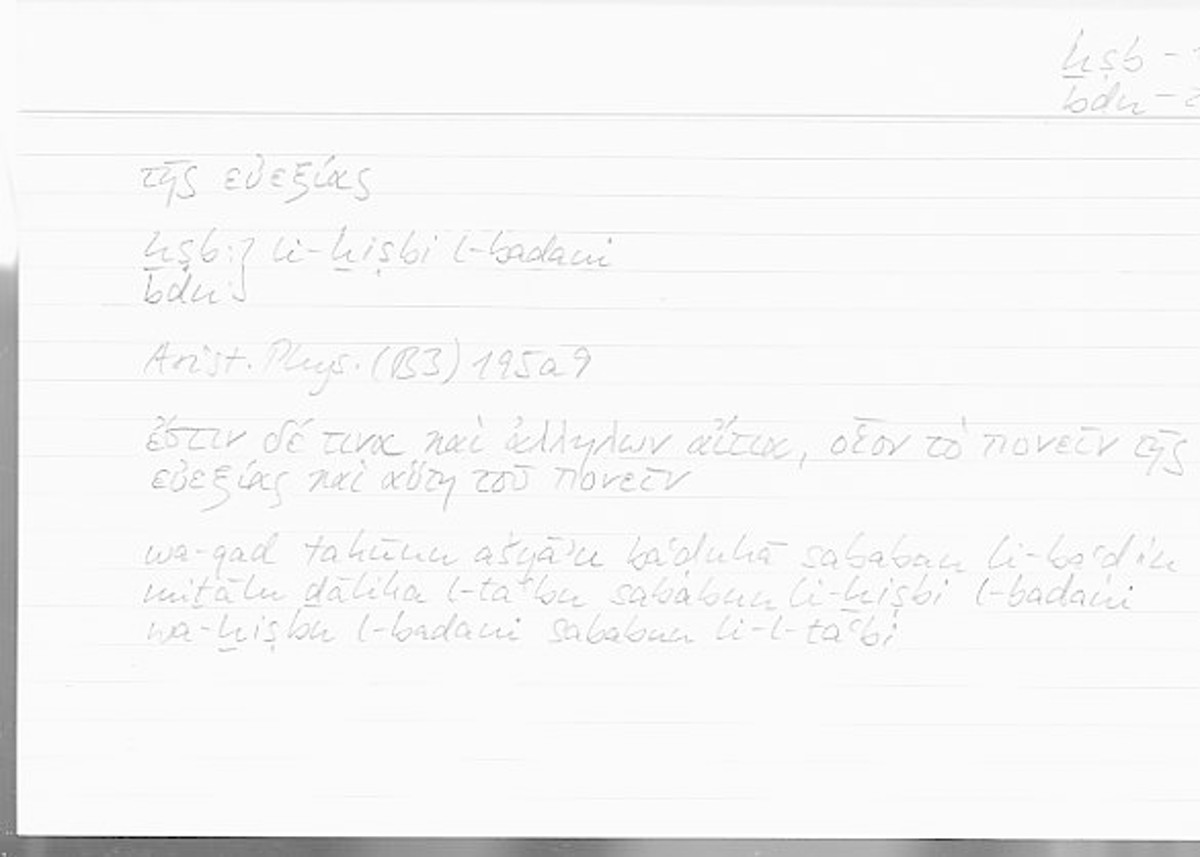 ḫṣb –
bdn – 2
τῆς εὐεξίας
ḫṣb:} li-ḫiṣbi l-badani
bdn:
Arist. Phys. (B3) 195a9
ἔστιν δέ τινα καὶ ἀλλήλων αἴτια, οἷον τὸ πονεῖν τῆς
εὐεξίας καὶ αὕτη τοῦ πονεῖν
wa-qad takūnu ašyāʾu baʿḍuhā sababan li-baʿḍin
miṯālu ḏālika l-taʿbu sababun li-ḫiṣbi l-badani
wa-ḫiṣbu l-badani sababun li-l-taʿbi